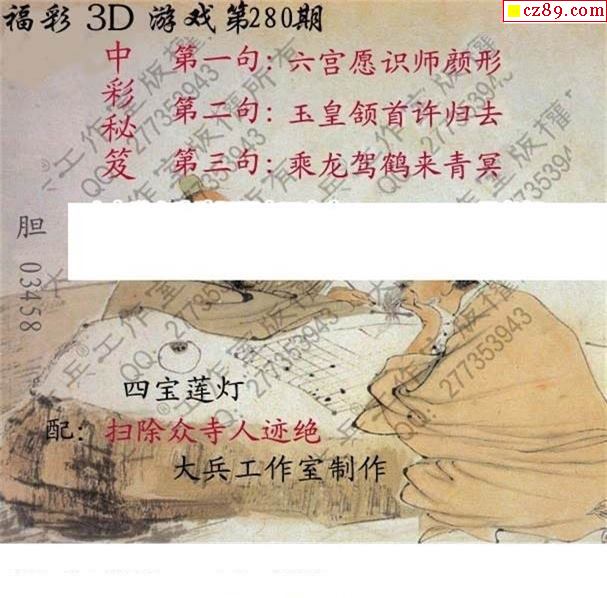 福彩 3D 游戏第280期
cz89.com
中彩秘笈
第一句：六宫愿识师颜形
第二句：玉皇颔首许归去
第三句：乘龙驾鹤来青冥
胆 03458
四宝莲灯
配：扫除众寺人迹绝
大兵工作室制作
大兵工作室版权所有
QQ：277353943